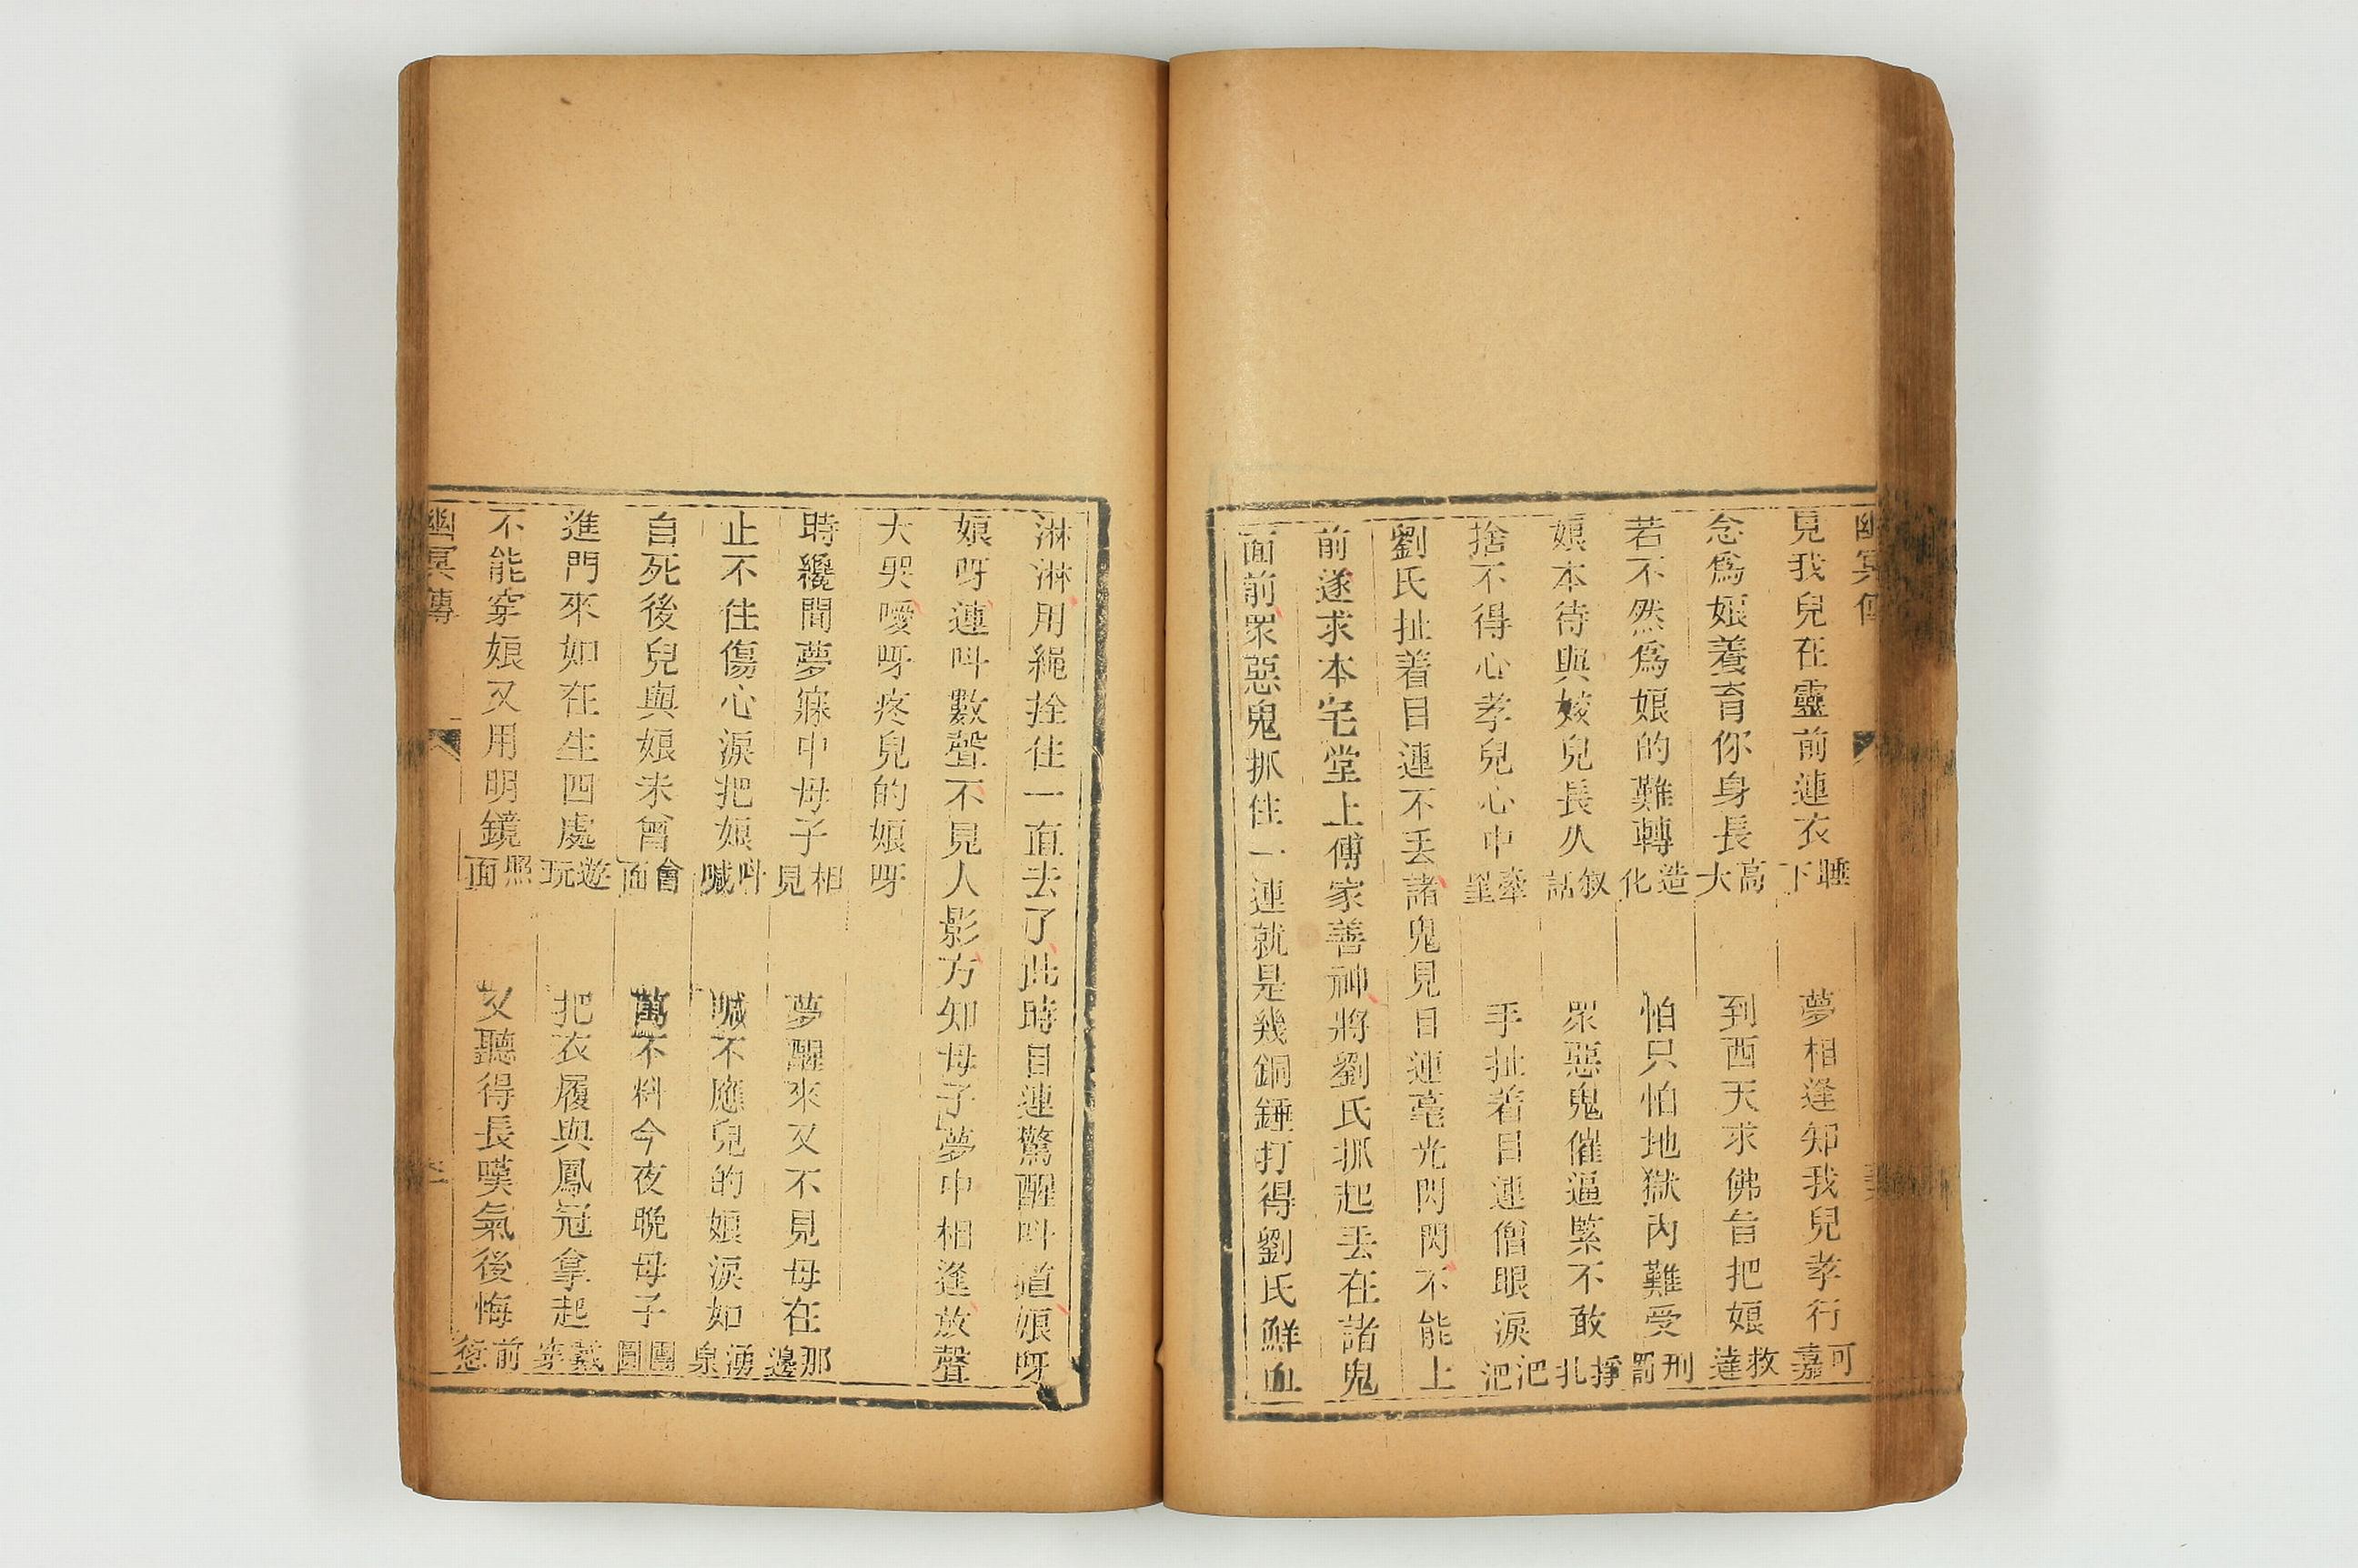 幽冥傳
見我兒在靈前連衣睡下 夢相逢知我兒孝行可嘉
念爲娘養育你身長高大 到西天求佛旨把娘救達
若不然爲娘的難轉造化 怕只怕地獄內難受刑罰
娘本待與姣兒長久叙話 眾惡鬼催逼緊不敢掙扎
捨不得心孝兒心中牽罣 手扯着目連僧眼淚汜汜
劉氏扯着目連不丟諸鬼見目連毫光閃閃不能上
前遂求本宅堂上傅家善神將劉氏抓起丟在諸鬼
面前眾惡鬼抓住一連就是幾銅錘打得劉氏鮮血
淋淋用繩拴住一直去了此時目連驚醒呌道娘呀
娘呀連呌數聲不見人影方知母子夢中相逢放聲
大哭噯呀疼兒的娘呀
時纔間夢寐中母子相見 夢醒來又不見母在那邊
止不住傷心淚把娘呌喊 喊不應兒的娘淚如湧泉
自死後兒與娘未曾會面 萬不料今夜晚母子團圓
進門來如在生四處遊玩 把衣履與鳳冠拿起戴穿
不能穿娘又用明鏡照面 又聽得長嘆氣後悔前愆
幽冥傳